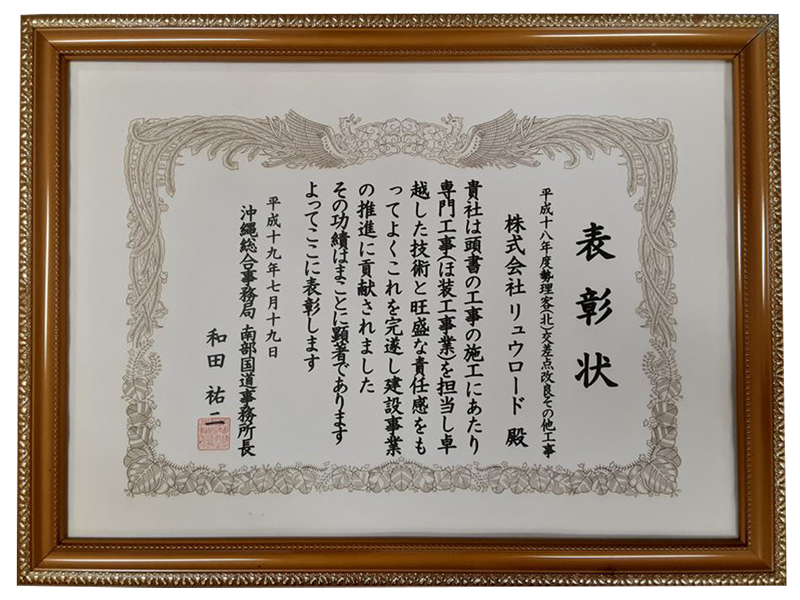 表彰状
平成十八年度勢理客(北)交差点改良その他工事
株式会社 リュウロード 殿
貴社は頭書の工事の施工にあたり
専門工事(ほ装工事業)を担当し卓
越した技術と旺盛な責任感をも
ってよくこれを完遂し建設事業
の推進に貢献されました
その功績はまことに顕著であります
よってここに表彰します
平成十九年七月十九日
沖縄総合事務局 南部国道事務所長
和田 祐二